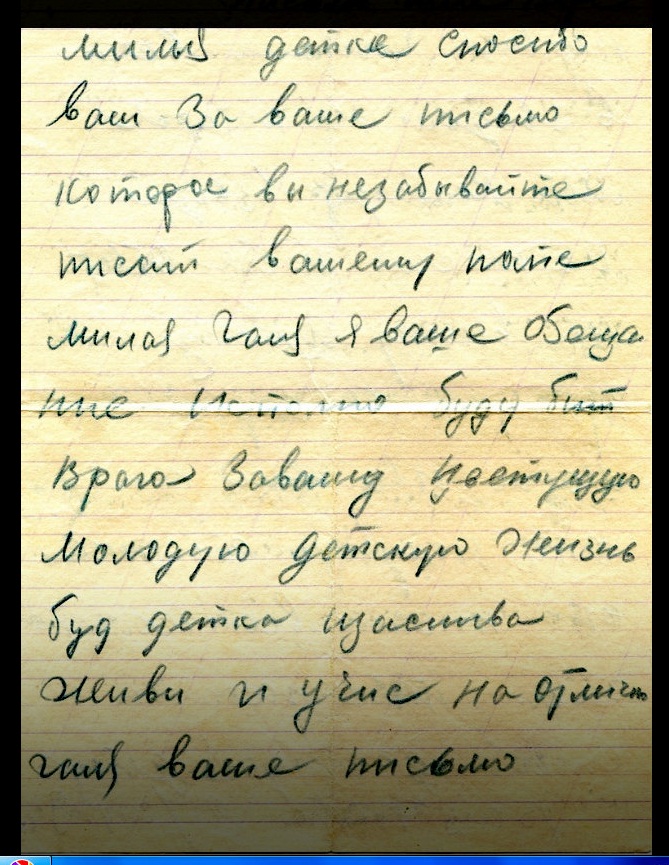 милыя детка спосибо
ваш За ваше письмо
которое вы незабывайте
писат вашему папе
милая Галя я ваше обеща
ние Исполню буду бит
Врага Завашу цветущую
Молодую детскую Жизнь
буд детка щаслива
Живи и учис на отлично
галя ваше письмо